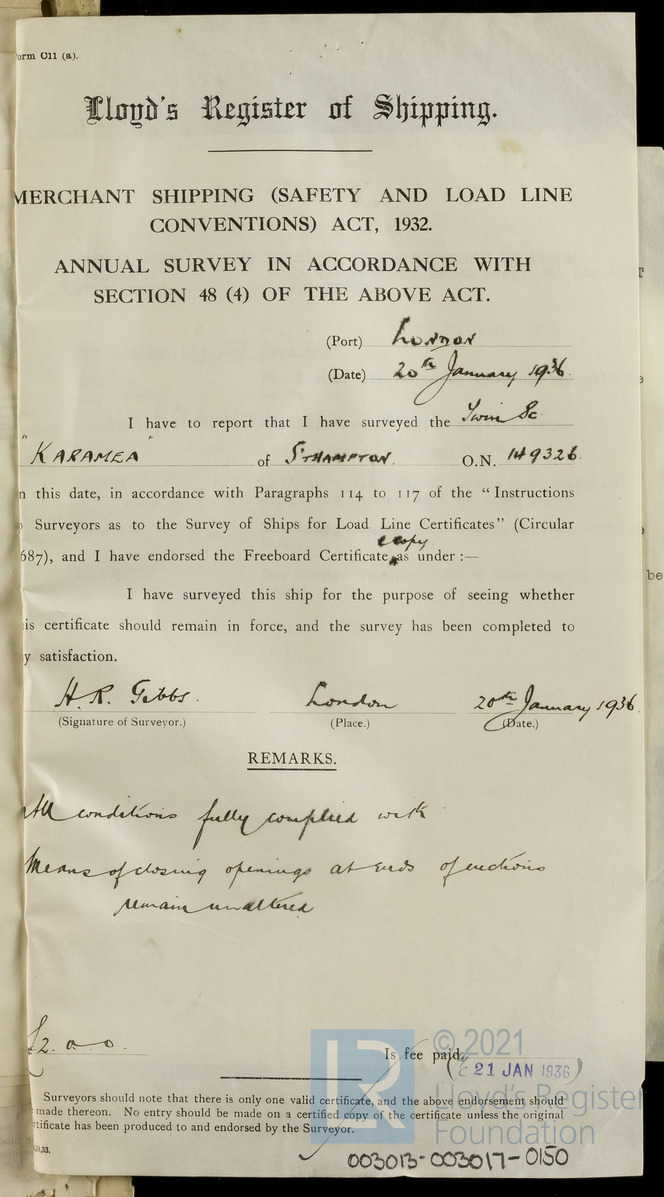 orm C11 (a).
Lloyd's Register of Shipping.
MERCHANT SHIPPING (SAFETY AND LOAD LINE
CONVENTIONS) ACT, 1932.
ANNUAL SURVEY IN ACCORDANCE WITH
SECTION 48 (4) OF THE ABOVE ACT.
(Port) London
(Date) 20th January 1936
I have to report that I have surveyed the Twin Sc
"KARAMEA" of S'THAMPTON. O.N. 149326
n this date, in accordance with Paragraphs 114 to 117 of the "Instructions
Surveyors as to the Survey of Ships for Load Line Certificates" (Circular
copy
687), and I have endorsed the Freeboard Certificate as under :—
I have surveyed this ship for the purpose of seeing whether
is certificate should remain in force, and the survey has been completed to
y satisfaction.
H. R. Gibbs. London 20th January 1936
(Signature of Surveyor.) (Place.) (Date.)
REMARKS.
All conditions fully complied with
Means of closing openings at ends of erections
remain unaltered
£2. 0. 0. Is fee paid
21 JAN 1936
© 2021
Lloyd's Register
Foundation
Surveyors should note that there is only one valid certificate, and the above endorsement should
made thereon. No entry should be made on a certified copy of the certificate unless the original
rtificate has been produced to and endorsed by the Surveyor.
003013-003017-0150